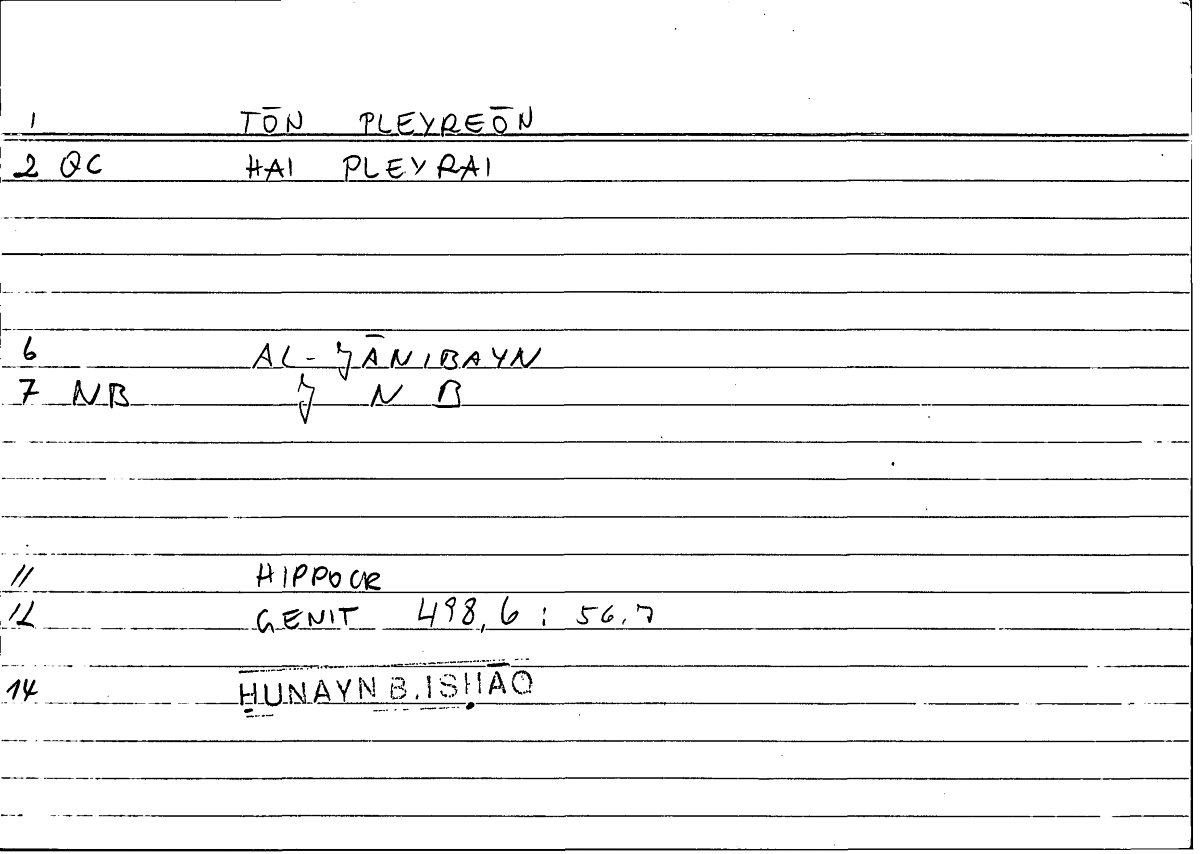 1 TŌN PLEYREŌN
2 QC HAI PLEYRAI
6 AL-JĀNIBAYN
7 NB J N B
11 HIPPOCR
12 GENIT 498,6 : 56.7
14 ḤUNAYN B. ISḤĀQ